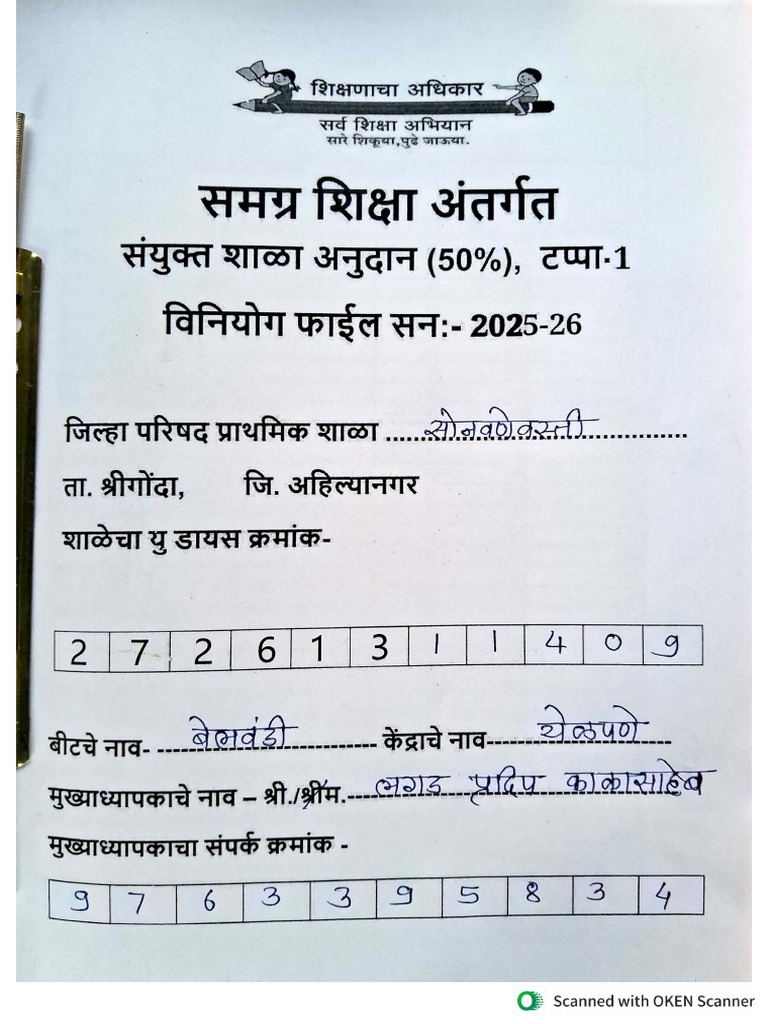 शिक्षणाचा अधिकार
सर्व शिक्षा अभियान
सारे शिकूया,पुढे जाऊया.
समग्र शिक्षा अंतर्गत
संयुक्त शाळा अनुदान (50%), टप्पा-1
विनियोग फाईल सन:- 2025-26
जिल्हा परिषद प्राथमिक शाळा ......सोनवणेवस्ती...............
ता. श्रीगोंदा, जि. अहिल्यानगर
शाळेचा यु डायस क्रमांक-
2 7 2 6 1 3 1 1 4 0 9
बीटचे नाव- बेलवंडी केंद्राचे नाव- येळपणे
मुख्याध्यापकाचे नाव – श्री./श्रीम. लगड प्रदिप काकासाहेब
मुख्याध्यापकाचा संपर्क क्रमांक -
9 7 6 3 3 9 5 8 3 4
Scanned with OKEN Scanner